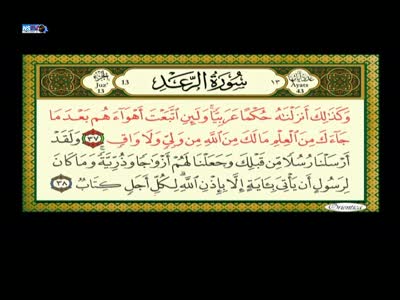 الجزء
Juz'
13
13
سُورَةُ الرَّعْدِ
١٣
Ayats
43
وَكَذَٰلِكَ أَنزَلْنَٰهُ حُكْمًا عَرَبِيًّا ۚ وَلَئِنِ ٱتَّبَعْتَ أَهْوَآءَهُم بَعْدَمَا
جَآءَكَ مِنَ ٱلْعِلْمِ مَالَكَ مِنَ ٱللَّهِ مِن وَلِىٍّ وَلَا وَاقٍ ٣٧ وَلَقَدْ
أَرْسَلْنَا رُسُلًا مِّن قَبْلِكَ وَجَعَلْنَا لَهُمْ أَزْوَٰجًا وَذُرِّيَّةً ۚ وَمَا كَانَ
لِرَسُولٍ أَن يَأْتِىَ بِـَٔايَةٍ إِلَّا بِإِذْنِ ٱللَّهِ ۗ لِكُلِّ أَجَلٍ كِتَابٌ ٣٨
Orientica